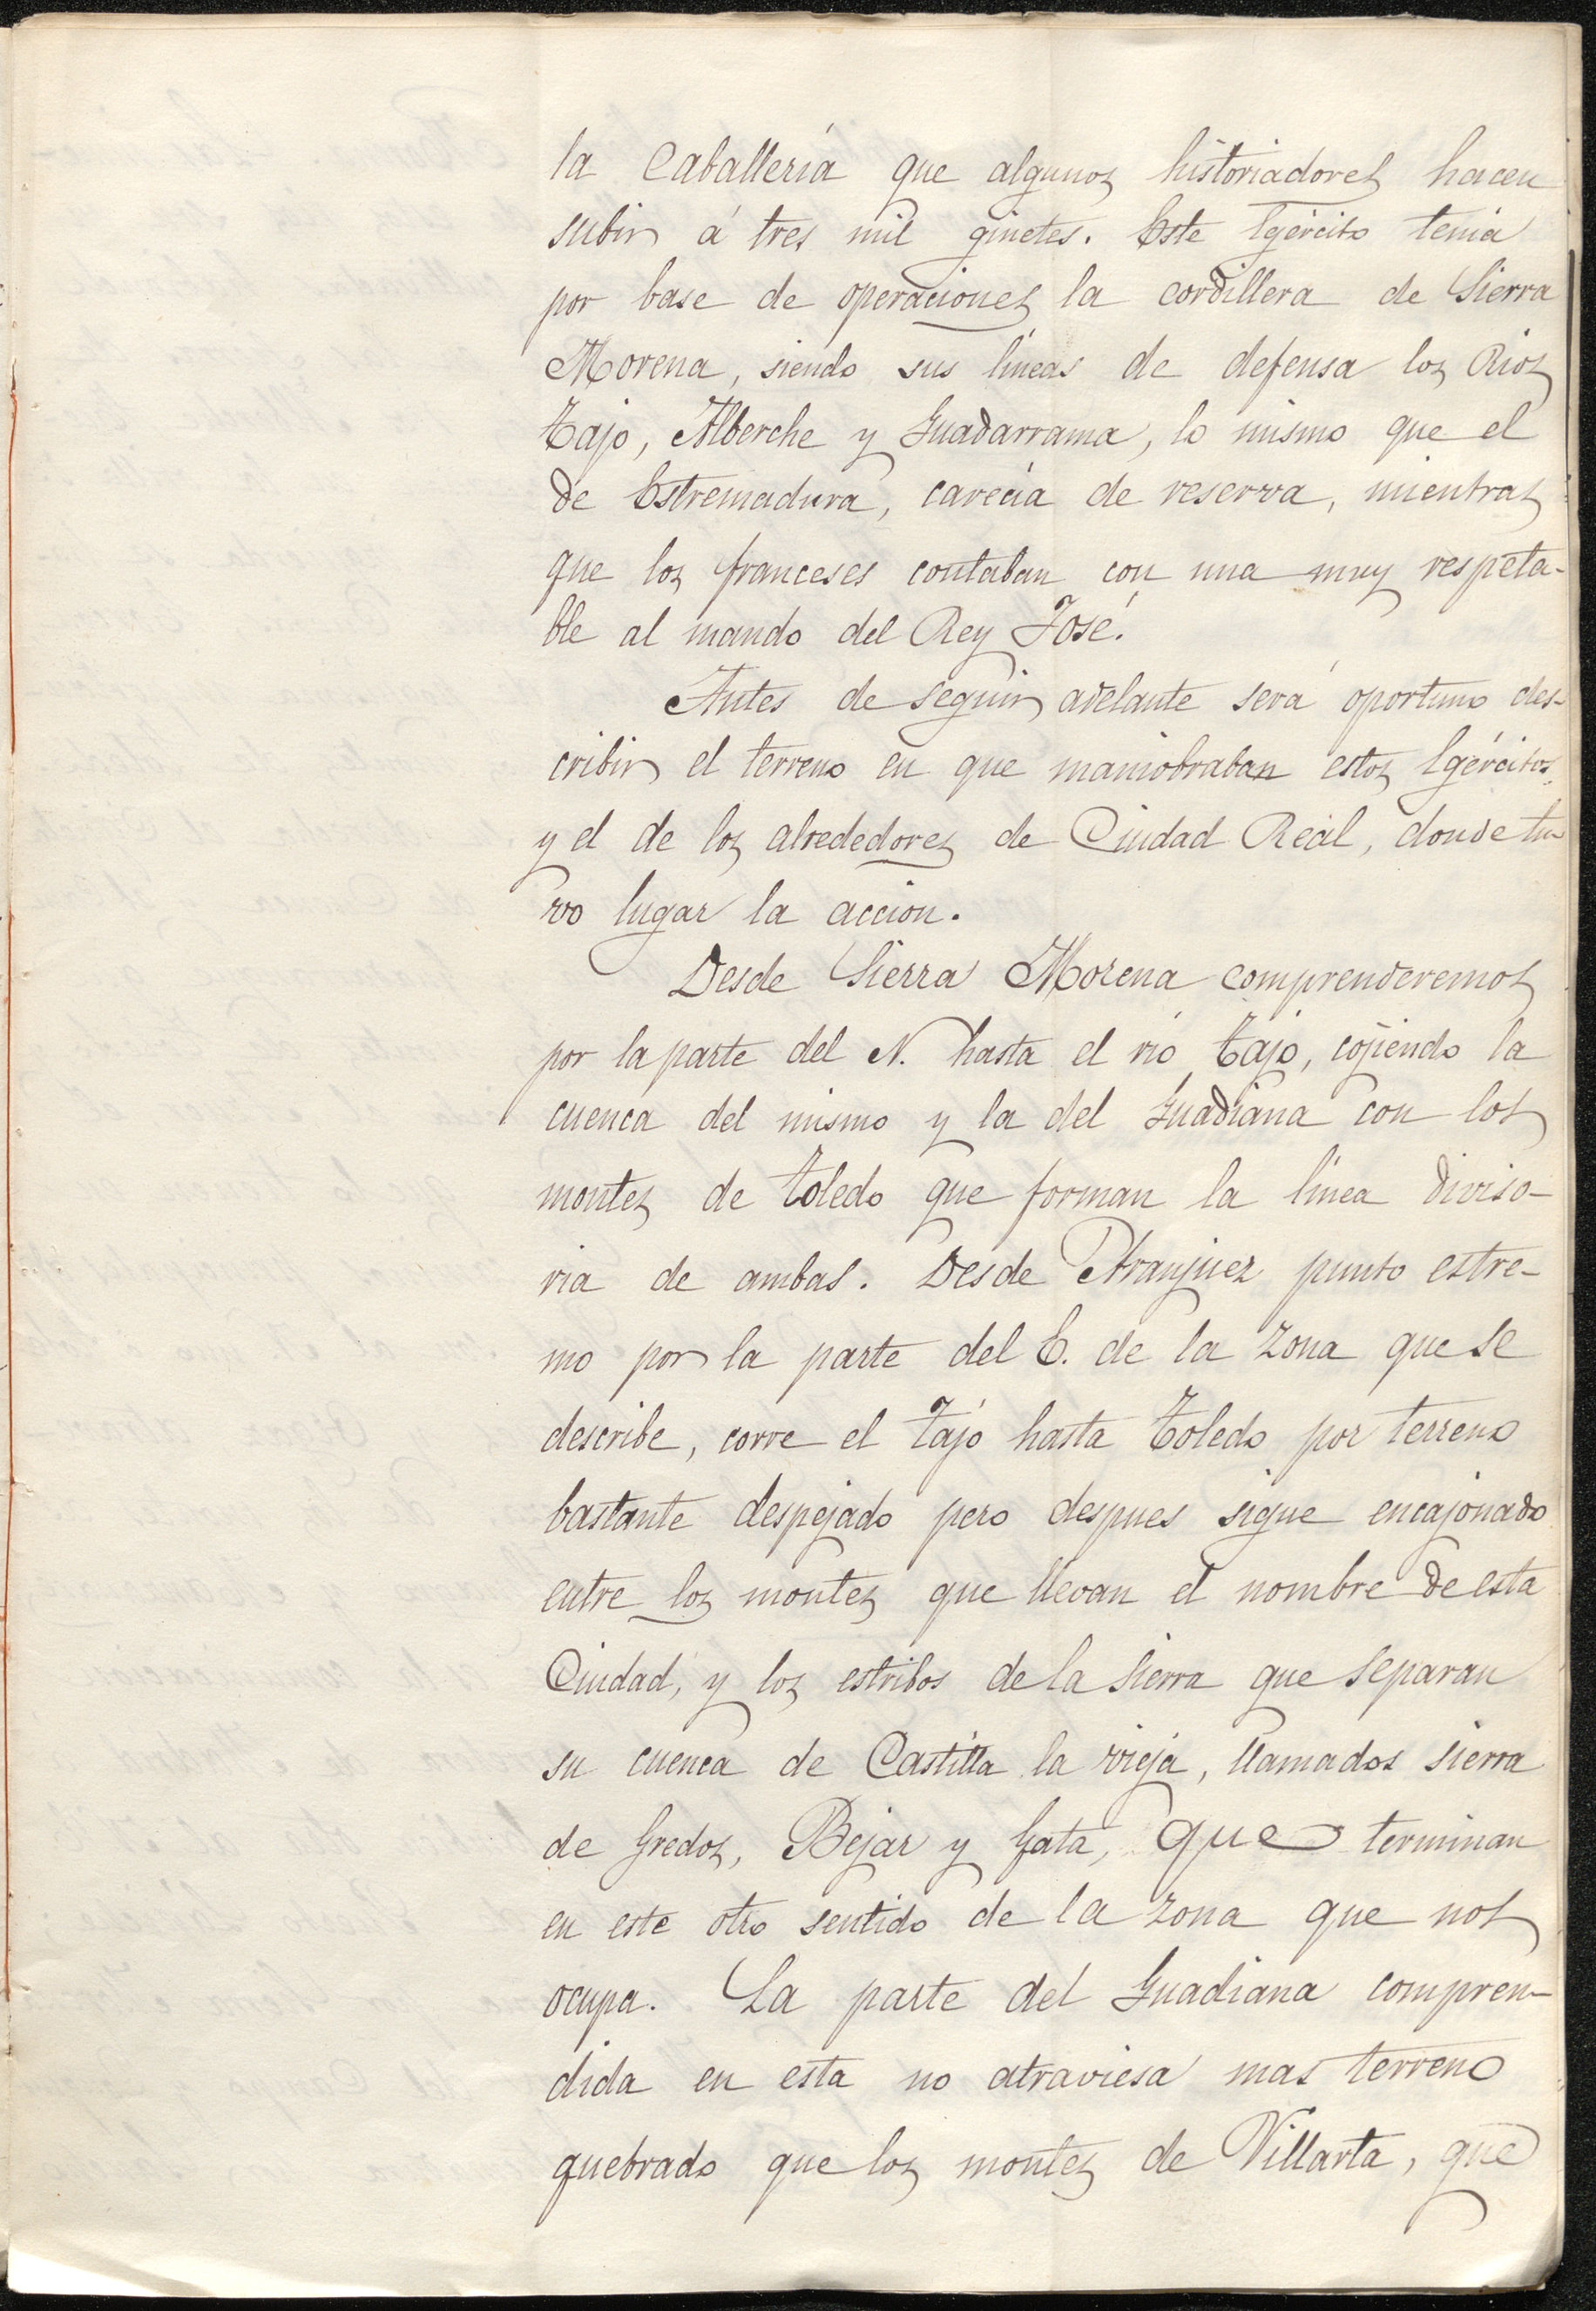 la Caballería que algunos historiadores hacen
subir á tres mil ginetes. Este Egército tenia
por base de operaciones la cordillera de Sierra
Morena, siendo sus líneas de defensa los Rios
Tajo, Alberche y Guadarrama, lo mismo que el
de Estremadura, carecia de reserva, mientras
que los franceses contaban con una muy respeta-
ble al mando del Rey José.
Antes de seguir adelante será oportuno des-
cribir el terreno en que maniobraban estos Egércitos,
y el de los alrededores de Ciudad Real, donde tu-
vo lugar la accion.
Desde Sierra Morena comprenderemos
por la parte del N. hasta el rio Tajo, cojiendo la
cuenca del mismo y la del Guadiana con los
montes de Toledo que forman la línea diviso-
ria de ambas. Desde Aranjuez punto estre-
mo por la parte del E. de la zona que se
describe, corre el Tajo hasta Toledo por terreno
bastante despejado pero despues sigue encajonado
entre los montes que llevan el nombre de esta
Ciudad, y los estribos de la sierra que separan
su cuenca de Castilla la vieja, llamados sierra
de Gredos, Bejar y Gata, que terminan
en este otro sentido de la zona que nos
ocupa. La parte del Guadiana compren-
dida en esta no atraviesa mas terreno
quebrado que los montes de Villarta, que